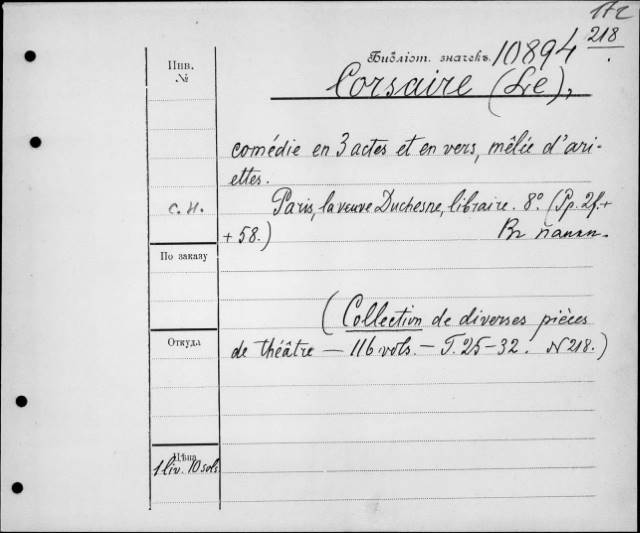 172
218
Библіот. значекъ 10894
Инв.
№
Corsaire (Le),
comédie en 3 actes et en vers, mêlée d'ari-
ettes.
с. н.
Paris, la veuve Duchesne, libraire. 8º. (Pp. 2f. +
+ 58.)
Въ папкѣ.
По заказу
(Collection de diverses pièces
Откуда
de théâtre — 116 vols. — T. 25-32. N 218.)
Цѣна
1 liv. 10 sols